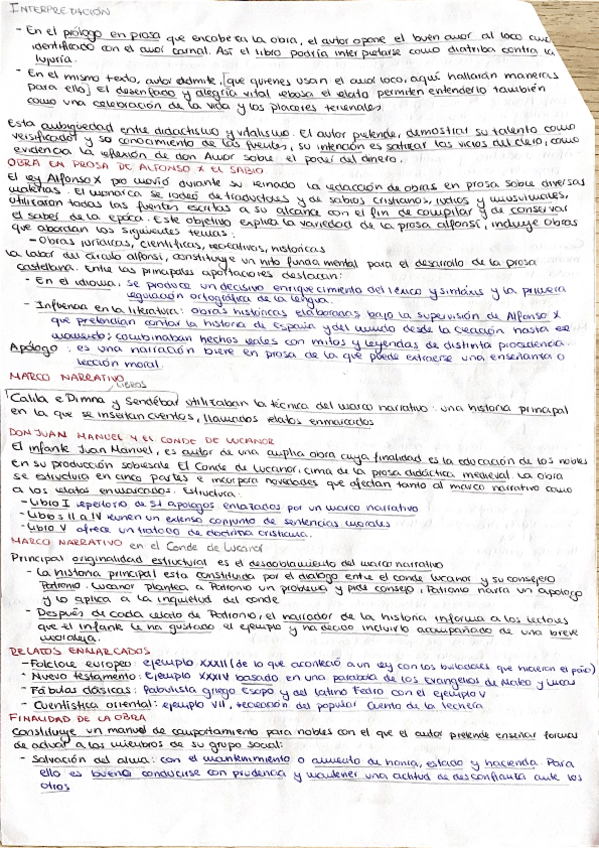 INTERPRETACIÓN
- En el prólogo en prosa que encabeza la obra, el autor opone el buen amor al loco amor
identificado con el amor carnal. Así el libro podría interpretarse como diatriba contra la
lujuria.
- En el mismo texto, autor admite, [que quienes usan el amor loco, aquí hallarán maneras
para ello] el desenfado y alegría vital rebosa el relato permiten entenderlo también
como una celebración de la vida y los placeres terrenales.
Esta ambigüedad entre didactismo y vitalismo. El autor pretende, demostrar su talento como
versificador y so conocimiento de las fuentes, su intención es satirizar los vicios del clero, como
evidencia la reflexión de don Amor sobre el poder del dinero.
OBRA EN PROSA DE ALFONSO X EL SABIO
El rey Alfonso X promovió durante su reinado la redacción de obras en prosa sobre diversas
materias. El monarca se rodeó de traductores y de sabios cristianos, judíos y musulmanes,
utilizaron todas las fuentes escritas a su alcance con el fin de compilar y de conservar
el saber de la época. Este objetivo explica la variedad de la prosa alfonsí, incluye obras
que abordan los siguientes temas:
- Obras jurídicas, científicas, recreativas, históricas
La labor del círculo alfonsí, constituye un hito fundamental para el desarrollo de la prosa
castellana. Entre las principales aportaciones destacan:
- En el idioma: se produce un decisivo enriquecimiento del léxico y sintaxis y la primera
regulación ortográfica de la lengua.
- Influencia en la literatura: obras históricas elaboradas bajo la supervisión de Alfonso X
que pretendían contar la historia de España y del mundo desde la creación hasta ese
momento; combinaban hechos reales con mitos y leyendas de distinta procedencia.
Apólogo: es una narración breve en prosa de la que puede extraerse una enseñanza o
lección moral.
MARCO NARRATIVO
libros
Calila e Dimna y Sendebar utilizaban la técnica del marco narrativo: una historia principal
en la que se insertan cuentos, llamados relatos enmarcados
DON JUAN MANUEL Y EL CONDE DE LUCANOR
El infante Juan Manuel, es autor de una amplia obra cuya finalidad es la educación de los nobles
en su producción sobresale El Conde de Lucanor, cima de la prosa didáctica medieval. La obra
se estructura en cinco partes e incorpora novedades que afectan tanto al marco narrativo como
a los relatos enmarcados. Estructura:
- Libro I repertorio de 51 apólogos enlazados por un marco narrativo
- Libros II a IV reúnen un extenso conjunto de sentencias morales
- Libro V ofrece un tratado de doctrina cristiana.
MARCO NARRATIVO en el Conde de Lucanor
Principal originalidad estructural es el desdoblamiento del marco narrativo
- La historia principal esta constituida por el dialogo entre el conde Lucanor y su consejero
Patronio. Lucanor plantea a Patronio un problema y pide consejo, Patronio narra un apologo
y lo aplica a la inquietud del conde
- Después de cada relato de Patronio, el narrador de la historia informa a los lectores
que el infante le ha gustado el ejemplo y ha decido incluirlo acompañado de una breve
moraleja.
RELATOS ENMARCADOS
- Folclore europeo: ejemplo XXXII (de lo que aconteció a un rey con los burladores que hicieron el paño)
- Nuevo testamento: Ejemplo XXXIV basado en una parabola de los Evangelios de Mateo y Lucas
- Fábulas clásicas: Fabulista griego Esopo y del latino Fedro con el ejemplo V
- Cuentística oriental: ejemplo VII, recreación del popular cuento de la lechera
FINALIDAD DE LA OBRA
Constituye un manual de comportamiento para nobles con el que el autor pretende enseñar formas
de actuar a los miembros de su grupo social:
- Salvación del alma: con el mantenimiento o aumento de honra, estado y hacienda. Para
ello es bueno conducirse con prudencia y mantener una actitud de desconfianza ante los
otros